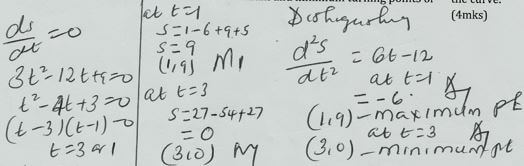 minimum turning points of the curve.
(4mks)
ds/dt = 0
3t² - 12t + 9 = 0
t² - 4t + 3 = 0
(t - 3)(t - 1) = 0
t = 3 or 1
at t = 1
s = 1 - 6 + 9 + 5
s = 9
(1, 9) M1
at t = 3
s = 27 - 54 + 27
= 0
(3, 0)
Distinguishing
d²s/dt² = 6t - 12
at t = 1
= -6.
(1, 9) - maximum pt
at t = 3
(3, 0) - minimum pt